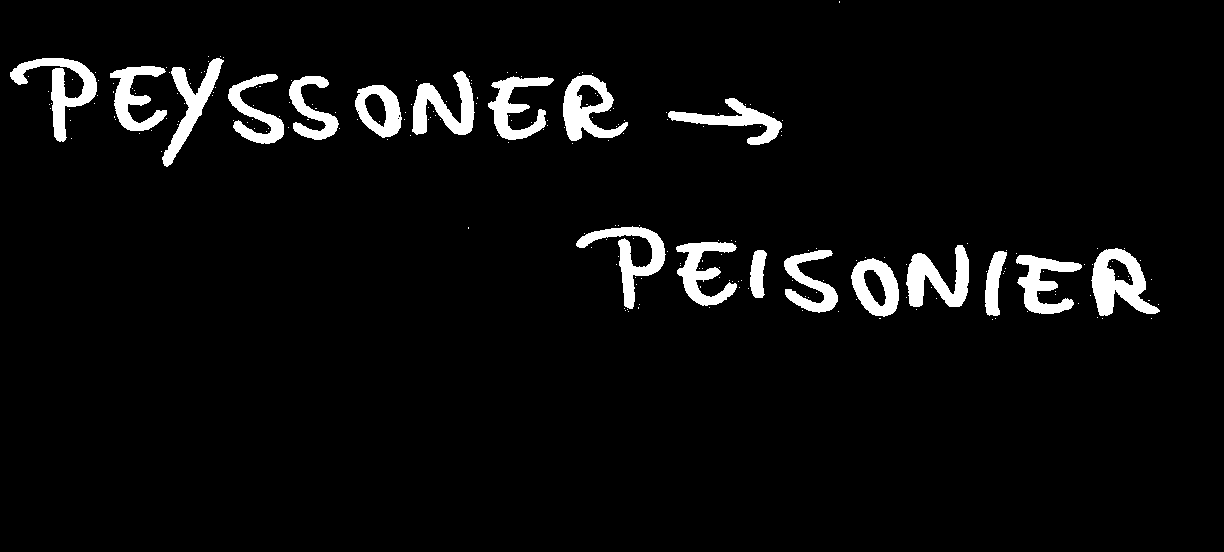 PEYSSONER →
PEISONIER